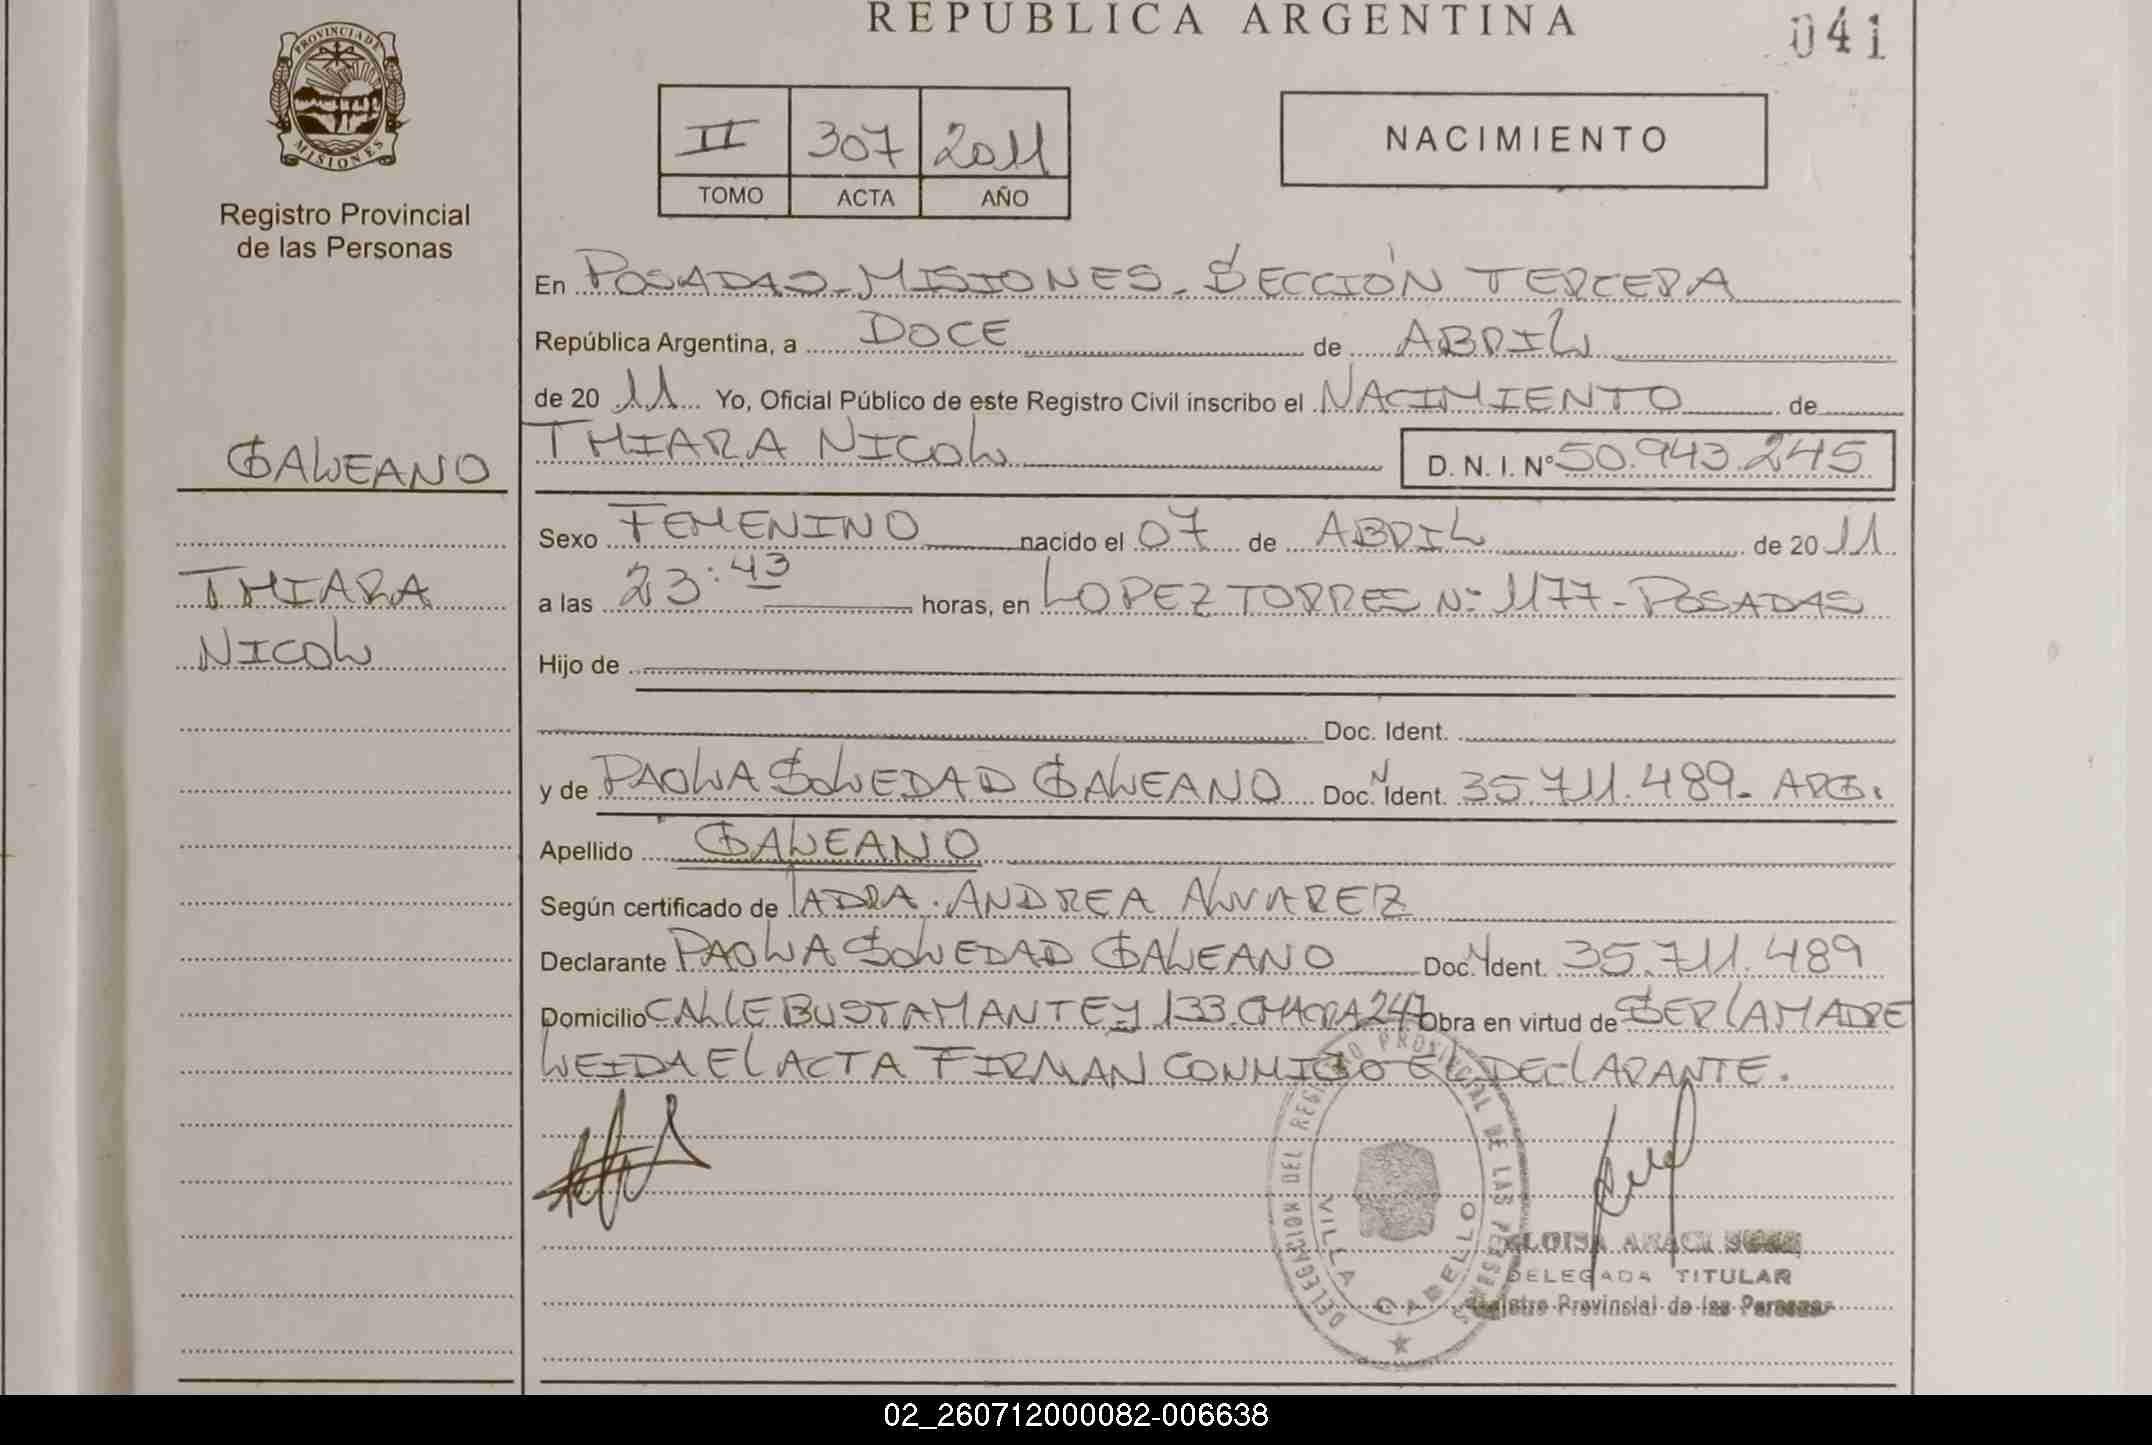 REPUBLICA ARGENTINA
041
PROVINCIA DE
MISIONES
Registro Provincial
de las Personas
II 307 2011
TOMO ACTA AÑO
NACIMIENTO
En POSADAS-MISIONES-SECCIÓN TERCERA
República Argentina, a DOCE de ABRIL
de 20 11 Yo, Oficial Público de este Registro Civil inscribo el NACIMIENTO de
GALEANO
THIARA NICOL D. N. I. Nº 50.943.245
Sexo FEMENINO nacido el 07 de ABRIL de 20 11
THIARA
a las 23:43 horas, en LOPEZ TORRES Nº 1177-POSADAS
NICOL
Hijo de
Doc. Ident.
y de PAOLA SOLEDAD GALEANO Doc. Ident. 35.711.489- ARG.
Apellido GALEANO
Según certificado de LA DRA. ANDREA ALVAREZ
Declarante PAOLA SOLEDAD GALEANO Doc. Ident. 35.711.489
Domicilio CALLE BUSTAMANTE Y 133.CHACRA 247 Obra en virtud de SER LA MADRE
LEIDA EL ACTA FIRMAN CONMIGO EL DECLARANTE.
DELEGACION DEL REGISTRO PROVINCIAL DE LAS PERSONAS
VILLA CABELLO
ELOISA ARACI
DELEGADA TITULAR
Registro Provincial de las Personas
02_260712000082-006638